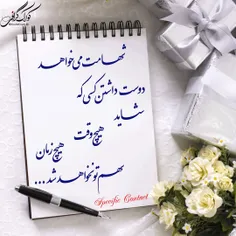 شهامت می‌خواهد
دوست داشتن کسی که
شاید
هیچ وقت
هیچ زمان
سهم تو نخواهد شد....
Specific Contact